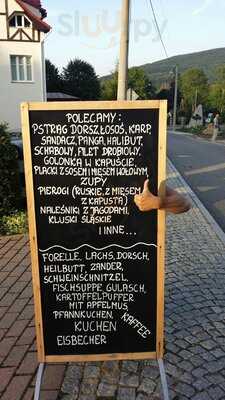 Sluurpy
POLECAMY:
PSTRĄG DORSZ ŁOSOŚ, KARP,
SANDACZ, PANGA, HALIBUT,
SCHABOWY, FILET DROBIOWY,
GOLONKA W KAPUŚCIE,
PLACKI Z SOSEM I MIĘSEM WOŁOWYM,
ZUPY
PIEROGI (RUSKIE, Z MIĘSEM
Z KAPUSTĄ)
NALEŚNIKI Z JAGODAMI,
KLUSKI ŚLĄSKIE
I INNE...
FORELLE, LACHS, DORSCH,
HEILBUTT, ZANDER,
SCHWEINSCHNITZEL
FISCHSUPPE GULASCH,
KARTOFFELPUFFER
MIT APFELMUS
PFANNKUCHEN,
KUCHEN KAFFEE
EISBECHER